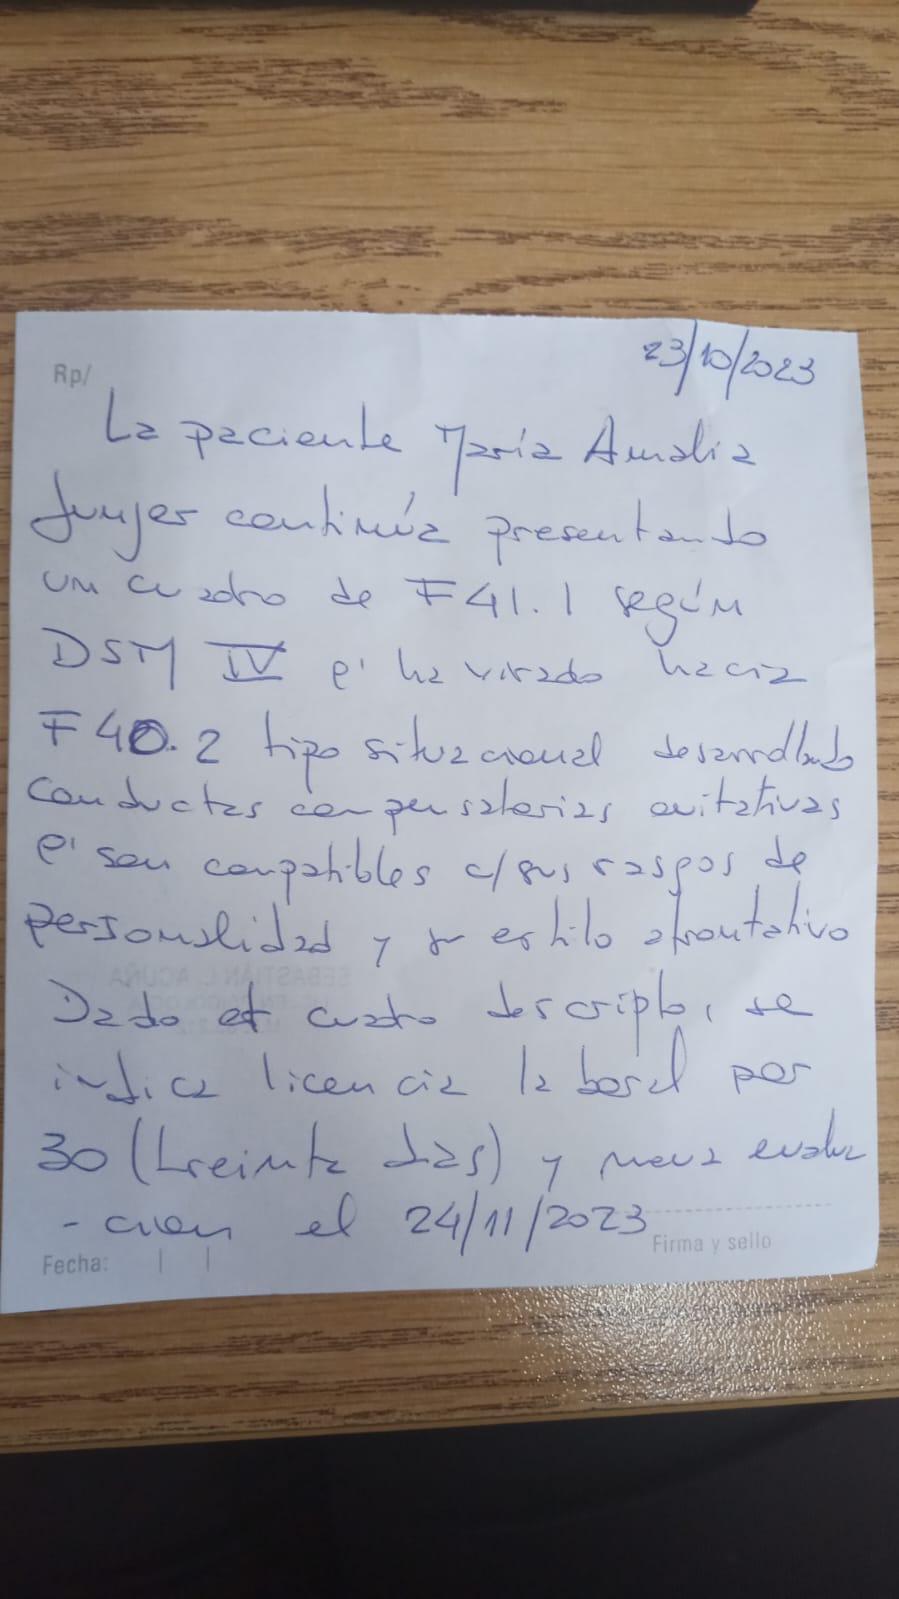 23/10/2023
Rp/
La paciente María Amalia
Junjer continúa presentando
un cuadro de F41.1 según
DSM IV q' ha virado hacia
F40.2 tipo situacional desarrollando
conductas compensatorias evitativas
q' son compatibles c/sus rasgos de
personalidad y su estilo afrontativo
Dado el cuadro descripto, se
indica licencia laboral por
30 (treinta días) y nueva evalua
-cion el 24/11/2023
Firma y sello
Fecha: | |